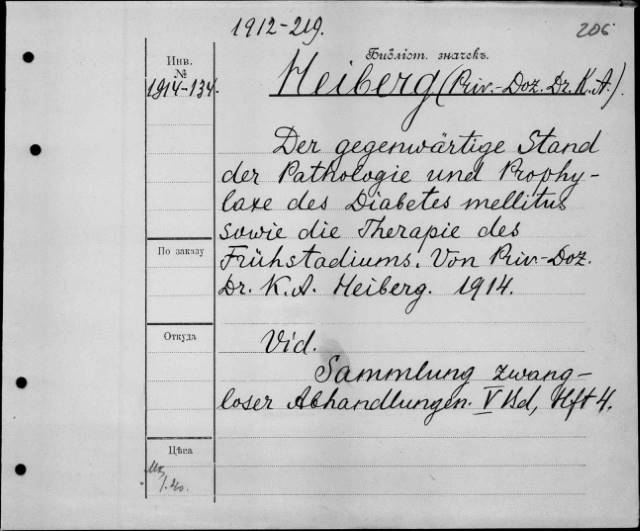 1912-219.
206
Библіот. значекъ.
Инв.
№
1914-134.
Heiberg (Priv.-Doz. Dr. K. A.).
Der gegenwärtige Stand
der Pathologie und Prophy-
laxe des Diabetes mellitus
sowie die Therapie des
Frühstadiums. Von Priv.-Doz.
Dr. K. A. Heiberg. 1914.
По заказу
Откуда
Vid.
Sammlung zwang-
loser Abhandlungen. V Bd, Hft 4.
Цѣна
1.20.